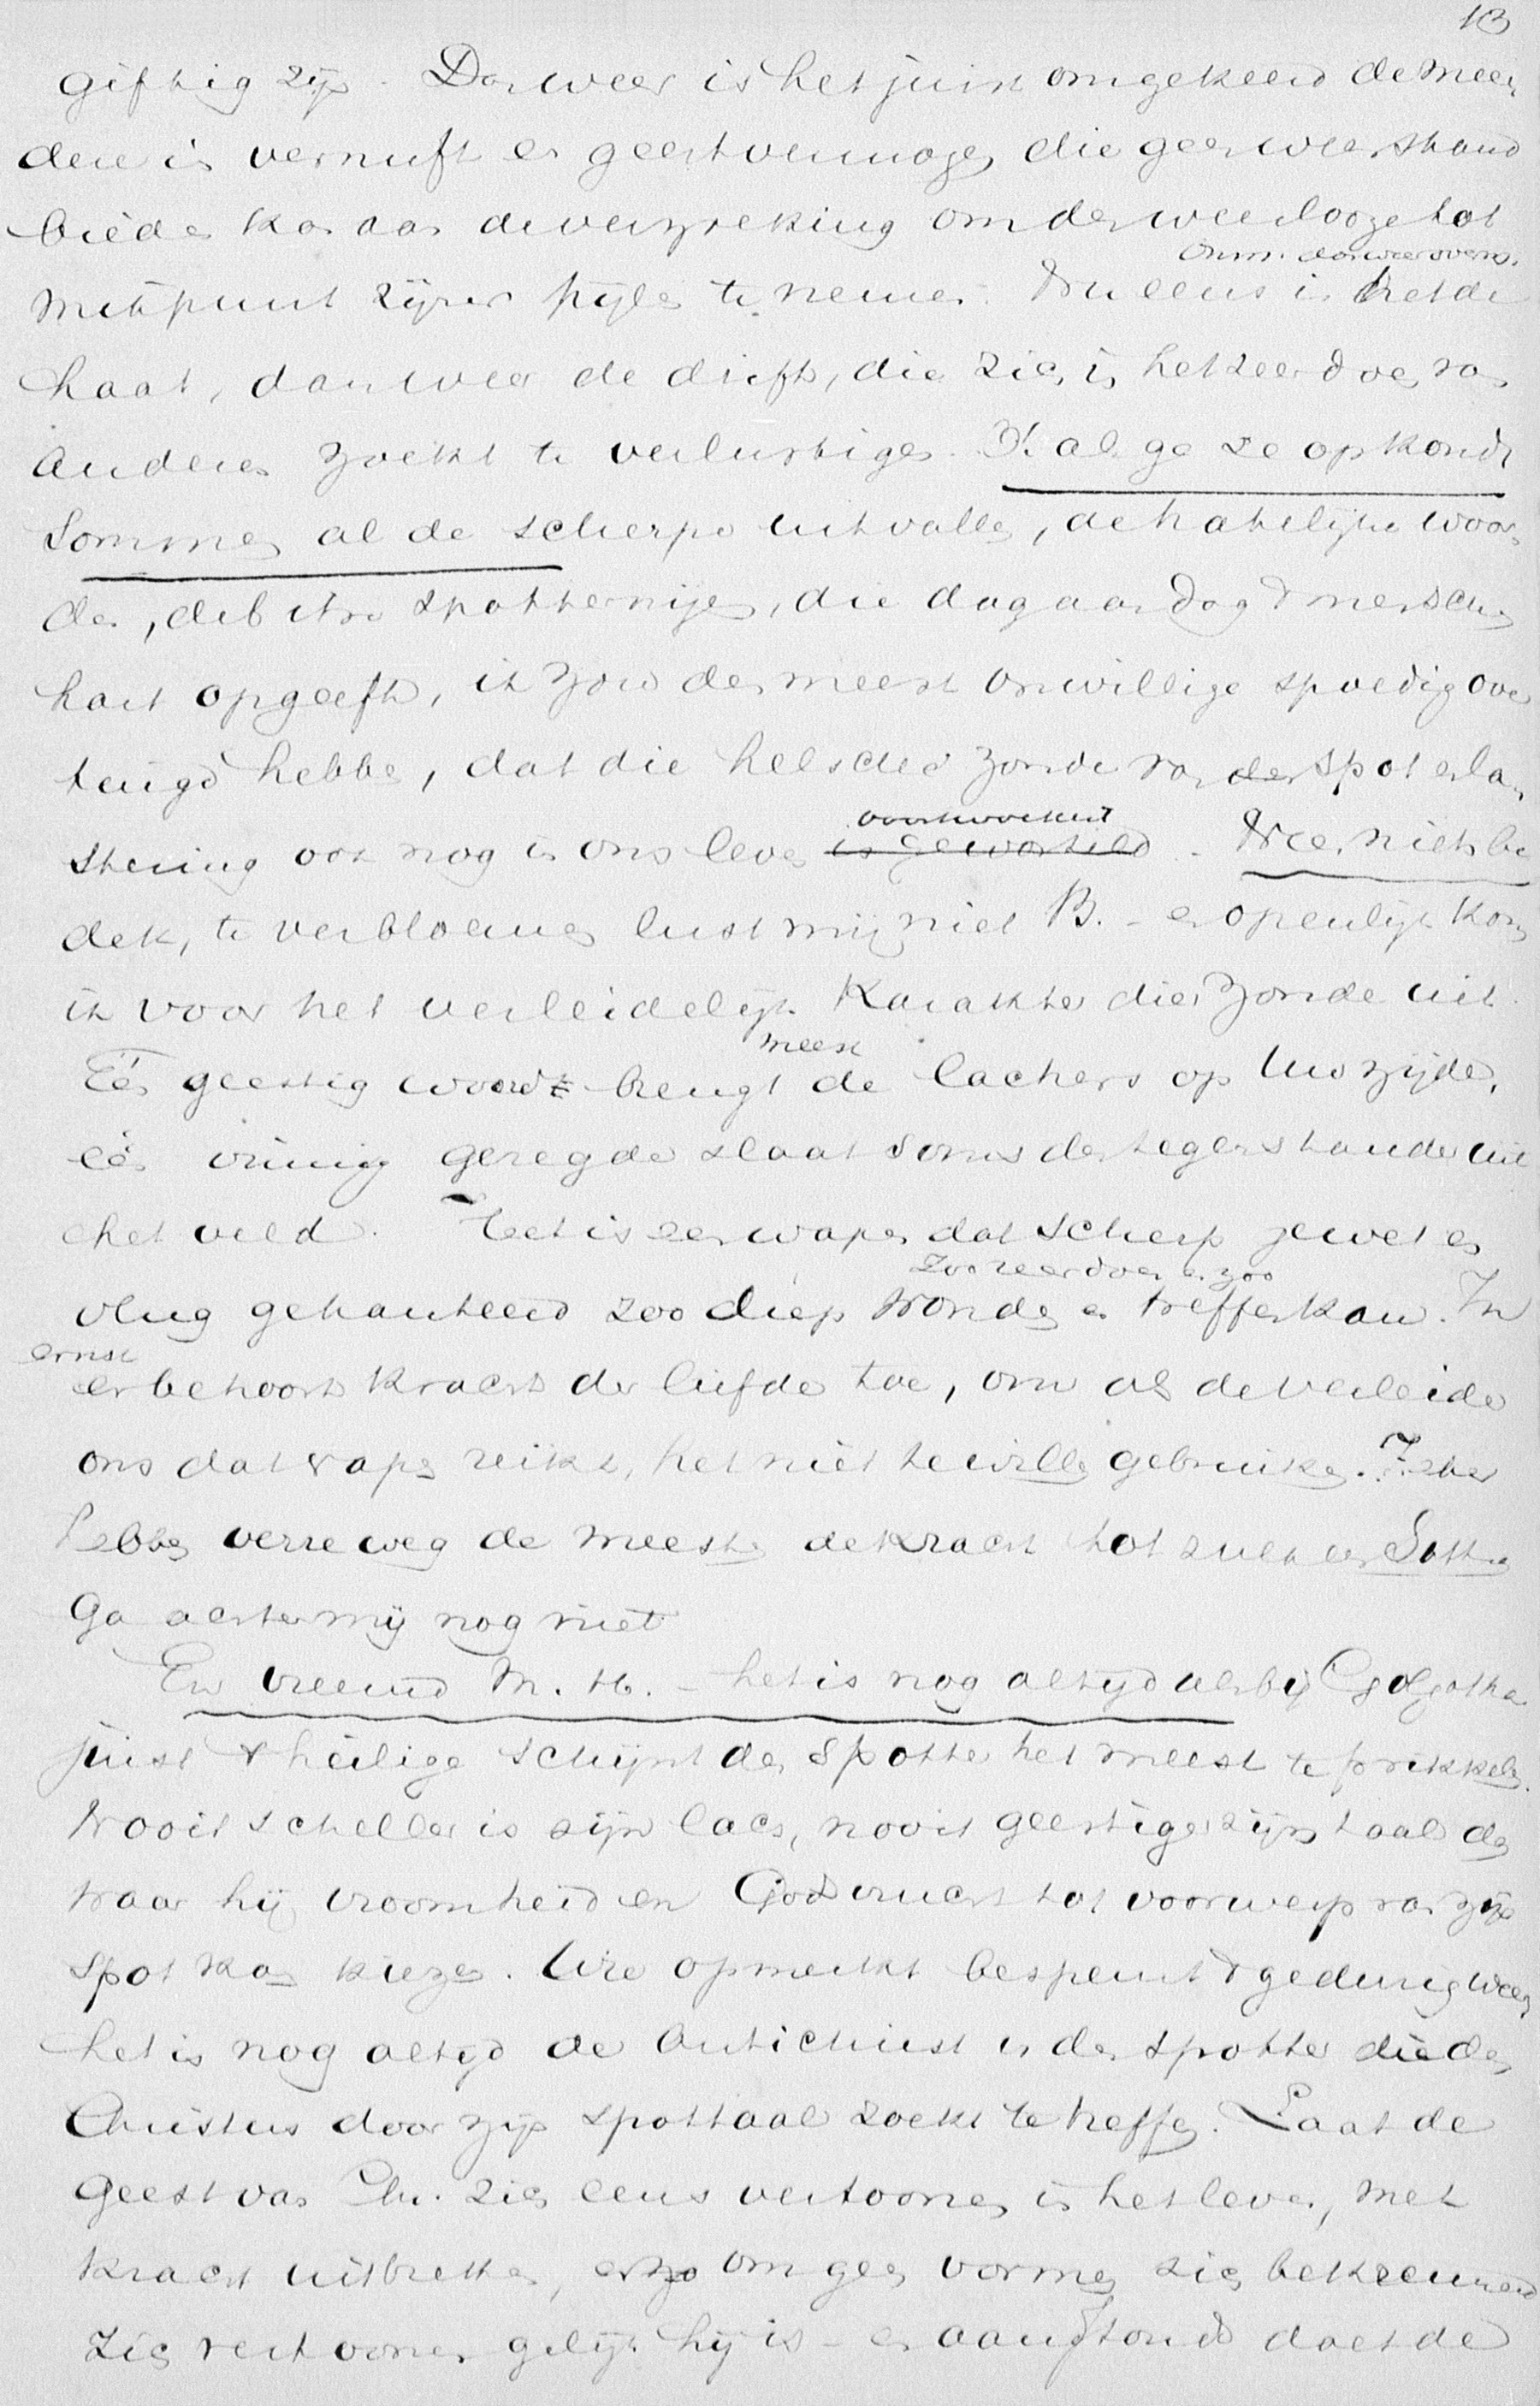 13
giftig zijn. Dan weer is het juist omgekeerd de meer
dere in vernuft en geestvermogen die geen weerstand
bieden kan aan de verzoeking om den weerlooze tot
mikpunt zijner pijlen te nemen. Nu eens is het de
haat, dan weer de drift, die zich in het zeer doen van
anderen zoekt te verlustigen. Kal ge ze op kondt
Sommen al de scherpe uitvallen, de hatelijke woor
den, de bittre spotternijen, die dag aan dag 't menschen
hart opgeeft, ik zou den meest onwillige spoedig over
tuigd hebben, dat die helsche zonde van den spot en la
stering ook nog in ons leven voortwoekert is geworteld. Neen, niets be
dekt, te verbloemen lust mij niet B. - en openlijk kom
ik voor het verleidelijk karakter dier zonde uit.
Eén geestig woord brengt meest de lachers op Uw zijde,
één vinnig gezegde slaat soms den tegenstander uit
het veld. Het is een wapen dat scherp gewet en
vlug gehanteerd zoo diep wonden zoo zeer doen en zoo en treffen kan. In
ernst
er behoort kracht der liefde toe, om als de verleider
ons dat wapen reikt, het niet te willen gebruiken. Zeker
hebben verreweg de meesten de kracht tot zulk een Satan
Ga achter mij nog niet
En vreemd M. H. - het is nog altijd als bij Golgotha
juist 't heilige schijnt den spotter het meest te prikkelen.
Nooit scheller is zijn lach, nooit geestiger zijn taal dan
waar hij vroomheid en Godsvrucht tot voorwerp van zijn
spot kan kiezen. Wie opmerkt bespeurt 't gedurig weer,
het is nog altijd de Antichrist in den spotter die den
Christus door zijn spottaal zoekt te treffen. Laat de
Geest van Chr. zich eens vertoonen in het leven, met
kracht uitbreken, en zo om geen vormen zich bekreunend
zich vertoonen gelijk hij is - en aanstonds doet de